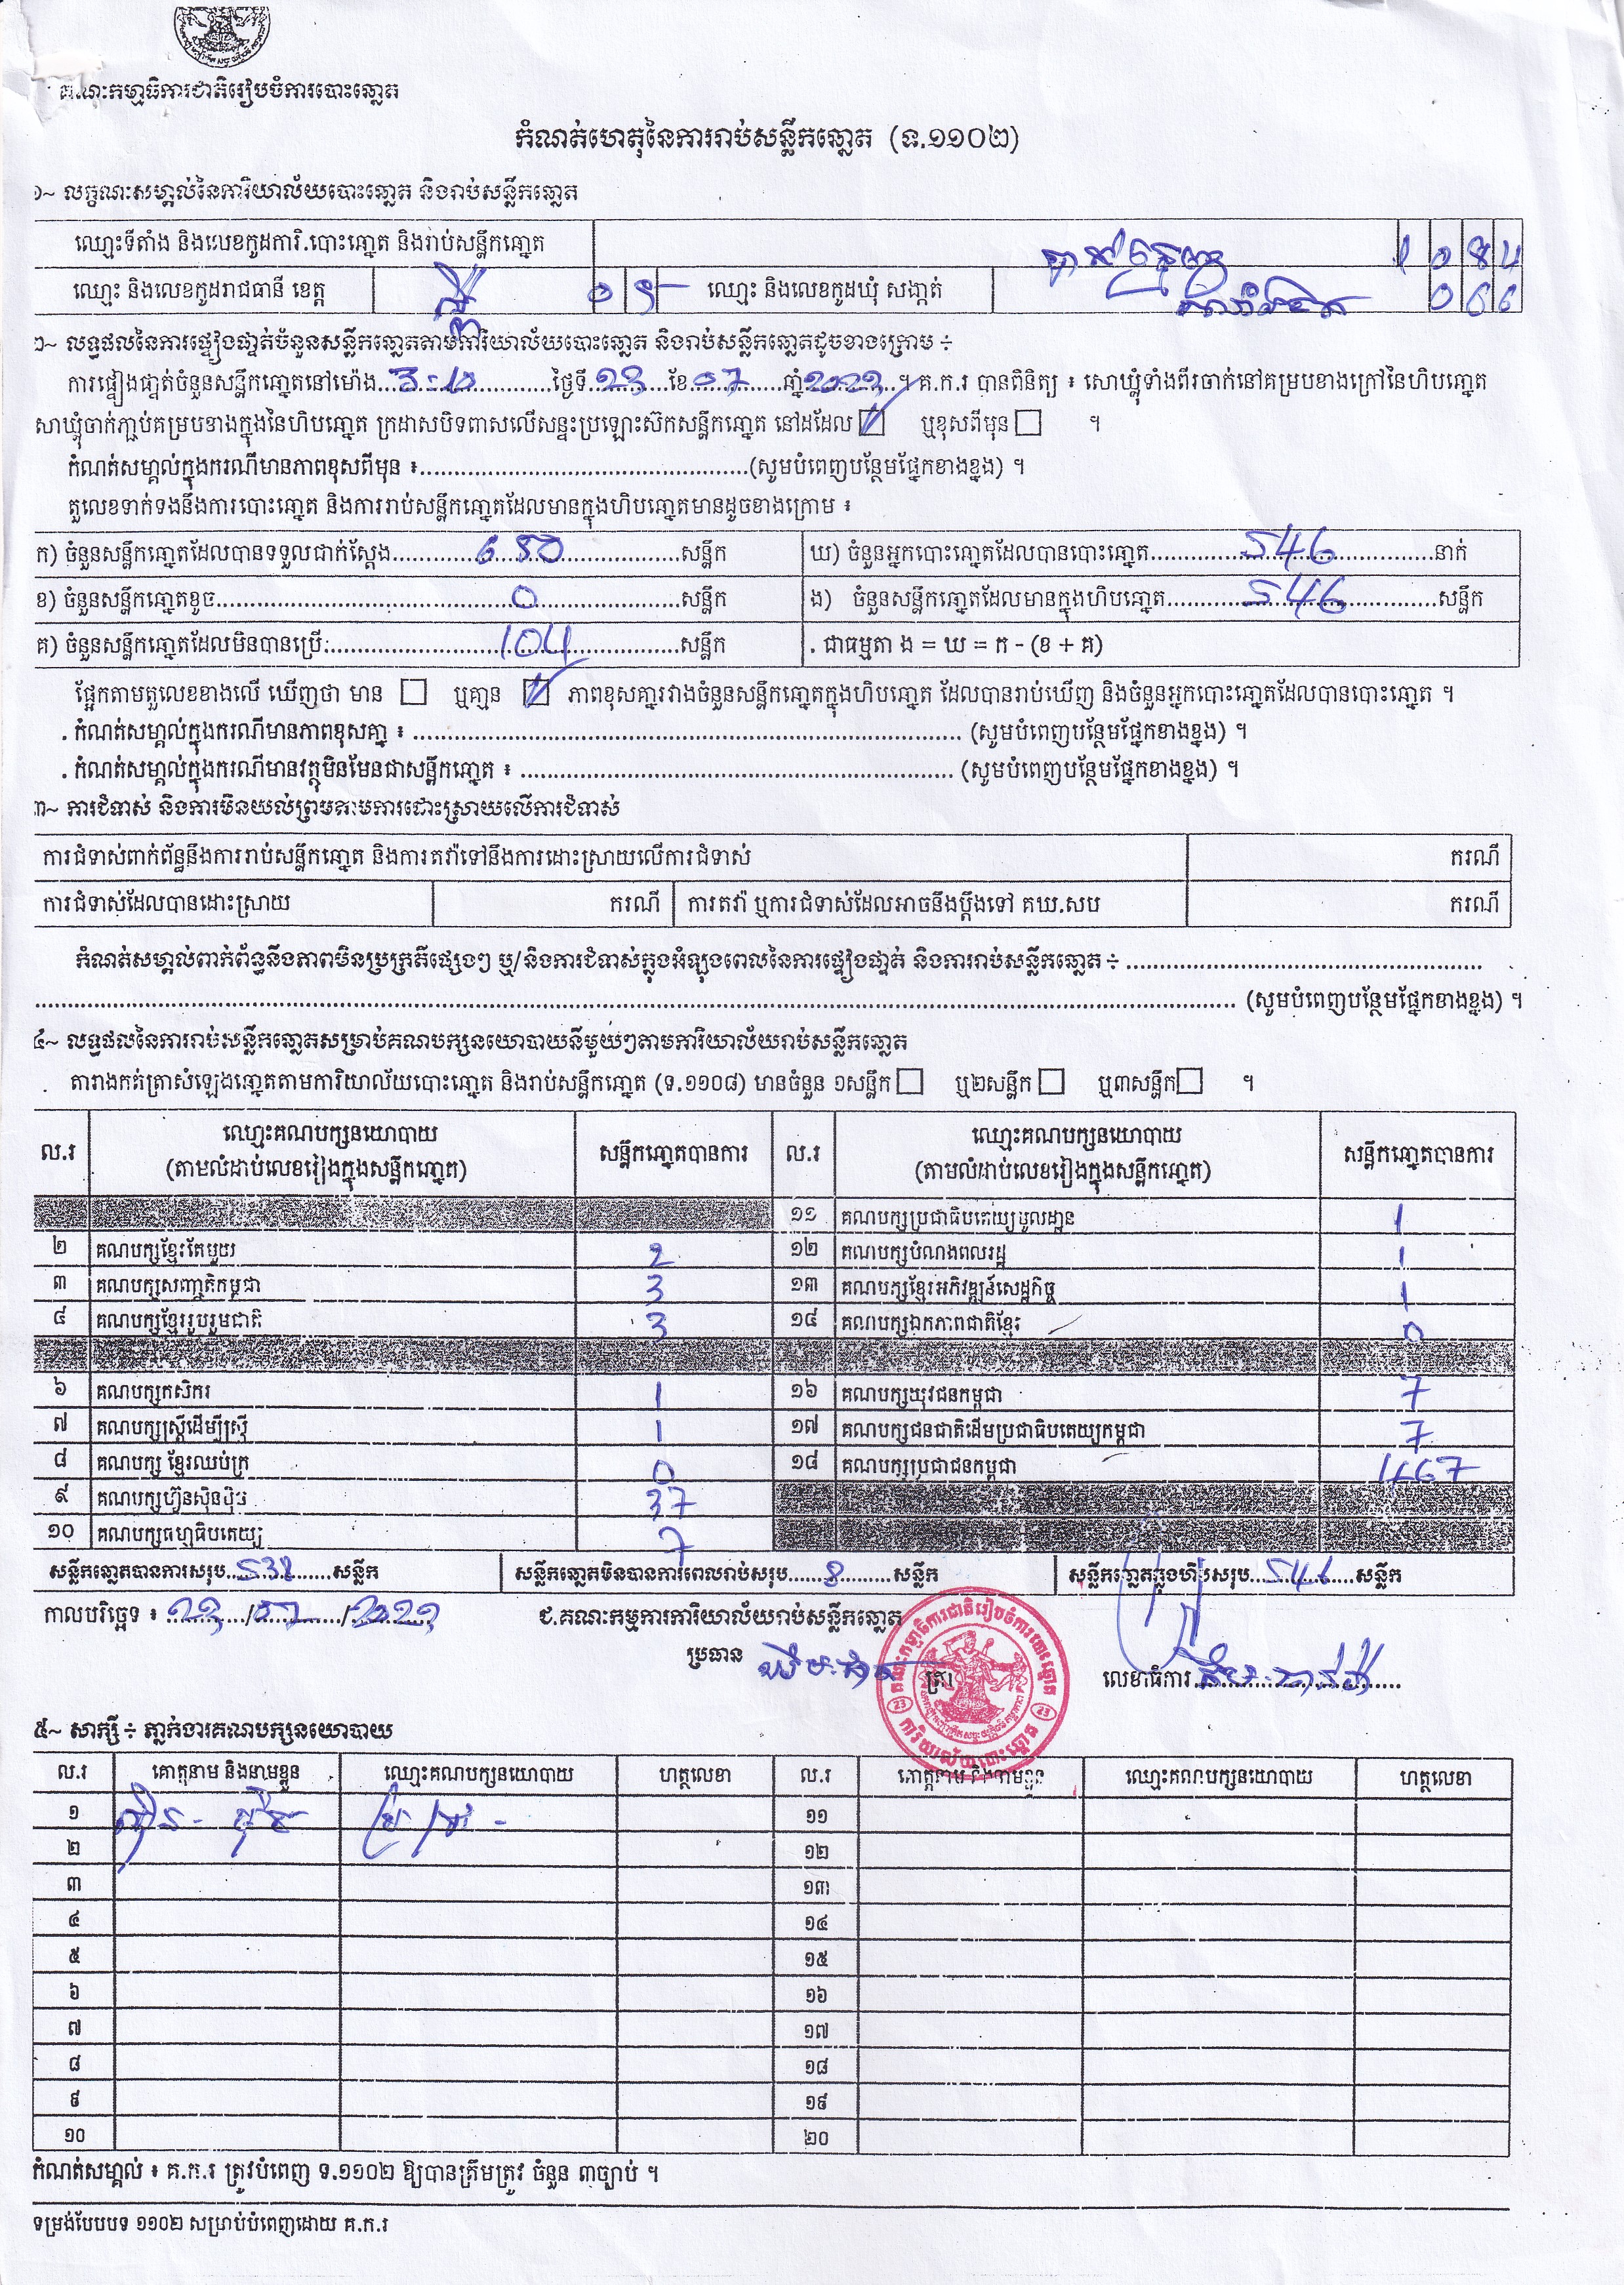 គណៈកម្មាធិការជាតិរៀបចំការបោះឆ្នោត
កំណត់ហេតុនៃការរាប់សន្លឹកឆ្នោត (ទ.១១០២)
១~ លក្ខណៈសម្គាល់នៃការិយាល័យបោះឆ្នោត និងរាប់សន្លឹកឆ្នោត
ឈ្មោះទីតាំង និងលេខកូដការិ.បោះឆ្នោត និងរាប់សន្លឹកឆ្នោត
ឈ្មោះ និងលេខកូដរាជធានី ខេត្ត ឈ្មោះ និងលេខកូដឃុំ សង្កាត់ 0 6 6
២~ លទ្ធផលនៃការផ្ទៀងផ្ទាត់ចំនួនសន្លឹកឆ្នោតតាមការិយាល័យបោះឆ្នោត និងរាប់សន្លឹកឆ្នោតដូចខាងក្រោម ÷
ការផ្ទៀងផ្ទាត់ចំនួនសន្លឹកឆ្នោតនៅម៉ោង 3-10 ថ្ងៃទី ២៣ ខែ ០7 ឆ្នាំ ២០២៣ ។ គ.ក.រ បានពិនិត្យ ៖ សោឃ្លុំទាំងពីរចាក់នៅគម្របខាងក្រៅនៃហិបឆ្នោត
សោឃ្លុំចាក់ភ្ជាប់គម្របខាងក្នុងនៃហិបឆ្នោត ក្រដាសបិទពាសលើសន្ទះប្រឡោះស៊កសន្លឹកឆ្នោត នៅដដែល ឬខុសពីមុន ។
កំណត់សម្គាល់ក្នុងករណីមានភាពខុសពីមុន ៖ (សូមបំពេញបន្ថែមផ្នែកខាងខ្នង) ។
តួលេខទាក់ទងនឹងការបោះឆ្នោត និងការរាប់សន្លឹកឆ្នោតដែលមានក្នុងហិបឆ្នោតមានដូចខាងក្រោម ៖
ក) ចំនួនសន្លឹកឆ្នោតដែលបានទទួលជាក់ស្តែង 650 សន្លឹក ឃ) ចំនួនអ្នកបោះឆ្នោតដែលបានបោះឆ្នោត 546 នាក់
ខ) ចំនួនសន្លឹកឆ្នោតខូច 0 សន្លឹក ង) ចំនួនសន្លឹកឆ្នោតដែលមានក្នុងហិបឆ្នោត 546 សន្លឹក
គ) ចំនួនសន្លឹកឆ្នោតដែលមិនបានប្រើ 104 សន្លឹក . ជាធម្មតា ង = ឃ = ក - (ខ + គ)
ផ្អែកតាមតួលេខខាងលើ ឃើញថា មាន ឬគ្មាន ភាពខុសគ្នារវាងចំនួនសន្លឹកឆ្នោតក្នុងហិបឆ្នោត ដែលបានរាប់ឃើញ និងចំនួនអ្នកបោះឆ្នោតដែលបានបោះឆ្នោត ។
. កំណត់សម្គាល់ក្នុងករណីមានភាពខុសគ្នា ៖ (សូមបំពេញបន្ថែមផ្នែកខាងខ្នង) ។
. កំណត់សម្គាល់ក្នុងករណីមានវត្ថុមិនមែនជាសន្លឹកឆ្នោត ៖ (សូមបំពេញបន្ថែមផ្នែកខាងខ្នង) ។
៣~ ការជំទាស់ និងការមិនយល់ព្រមតាមការដោះស្រាយលើការជំទាស់
ការជំទាស់ពាក់ព័ន្ធនឹងការរាប់សន្លឹកឆ្នោត និងការតវ៉ាទៅនឹងការដោះស្រាយលើការជំទាស់ ករណី
ការជំទាស់ដែលបានដោះស្រាយ ករណី ការតវ៉ា ឬការជំទាស់ដែលអាចនឹងប្តឹងទៅ គឃ.សប ករណី
កំណត់សម្គាល់ពាក់ព័ន្ធនឹងភាពមិនប្រក្រតីផ្សេងៗ ឬ/និងការជំទាស់ក្នុងអំឡុងពេលនៃការផ្ទៀងផ្ទាត់ និងការរាប់សន្លឹកឆ្នោត ÷
(សូមបំពេញបន្ថែមផ្នែកខាងខ្នង) ។
៤~ លទ្ធផលនៃការរាប់សន្លឹកឆ្នោតសម្រាប់គណបក្សនយោបាយនីមួយៗតាមការិយាល័យរាប់សន្លឹកឆ្នោត
. តារាងកត់ត្រាសំឡេងឆ្នោតតាមការិយាល័យបោះឆ្នោត និងរាប់សន្លឹកឆ្នោត (ទ.១១០៨) មានចំនួន ១សន្លឹក ឬ២សន្លឹក ឬ៣សន្លឹក ។
ល.រ ឈ្មោះគណបក្សនយោបាយ (តាមលំដាប់លេខរៀងក្នុងសន្លឹកឆ្នោត) សន្លឹកឆ្នោតបានការ ល.រ ឈ្មោះគណបក្សនយោបាយ (តាមលំដាប់លេខរៀងក្នុងសន្លឹកឆ្នោត) សន្លឹកឆ្នោតបានការ
១១ គណបក្សប្រជាធិបតេយ្យមូលដ្ឋាន 1
២ គណបក្សខ្មែរតែមួយ 2 ១២ គណបក្សបំណងពលរដ្ឋ 1
៣ គណបក្សសញ្ជាតិកម្ពុជា 3 ១៣ គណបក្សខ្មែរអភិវឌ្ឍន៍សេដ្ឋកិច្ច 1
៤ គណបក្សខ្មែររួបរួមជាតិ 3 ១៤ គណបក្សឯកភាពជាតិខ្មែរ 0
៦ គណបក្សកសិករ 1 ១៦ គណបក្សយុវជនកម្ពុជា 7
៧ គណបក្សស្ត្រីដើម្បីស្ត្រី 1 ១៧ គណបក្សជនជាតិដើមប្រជាធិបតេយ្យកម្ពុជា 7
៨ គណបក្ស ខ្មែរឈប់ក្រ 0 ១៨ គណបក្សប្រជាជនកម្ពុជា 467
៩ គណបក្សហ៊្វុនស៊ិនប៉ិច 37
១០ គណបក្សធម្មាធិបតេយ្យ 7
សន្លឹកឆ្នោតបានការសរុប 538 សន្លឹក សន្លឹកឆ្នោតមិនបានការពេលរាប់សរុប 8 សន្លឹក សន្លឹកឆ្នោតក្នុងហិបសរុប 546 សន្លឹក
កាលបរិច្ឆេទ ៖ ២៣/០៧/២០២៣ ជ.គណៈកម្មការការិយាល័យរាប់សន្លឹកឆ្នោត
ប្រធាន ត្រា លេខាធិការ
គណៈកម្មាធិការជាតិរៀបចំការបោះឆ្នោត
23 23
ការិយាល័យបោះឆ្នោត
៥~ សាក្សី ÷ ភ្នាក់ងារគណបក្សនយោបាយ
ល.រ គោត្តនាម និងនាមខ្លួន ឈ្មោះគណបក្សនយោបាយ ហត្ថលេខា ល.រ គោត្តនាម និងនាមខ្លួន ឈ្មោះគណបក្សនយោបាយ ហត្ថលេខា
១ ១១
២ ១២
៣ ១៣
៤ ១៤
៥ ១៥
៦ ១៦
៧ ១៧
៨ ១៨
៩ ១៩
១០ ២០
កំណត់សម្គាល់ ៖ គ.ក.រ ត្រូវបំពេញ ទ.១១០២ ឱ្យបានត្រឹមត្រូវ ចំនួន ៣ច្បាប់ ។
ទម្រង់បែបបទ ១១០២ សម្រាប់បំពេញដោយ គ.ក.រ